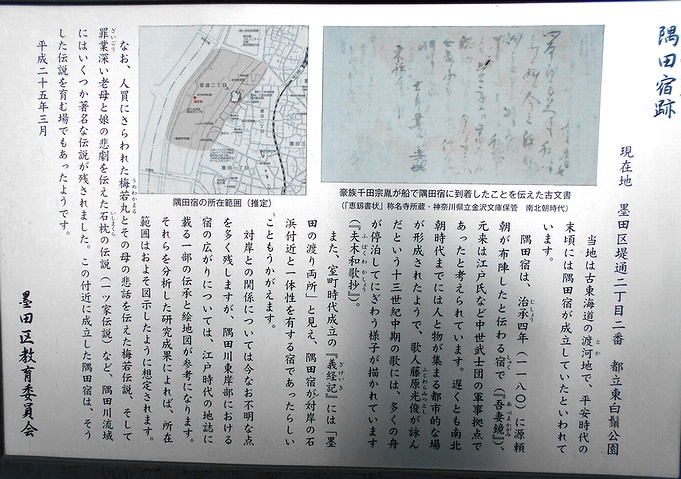 隅田宿跡
現在地　墨田区堤通二丁目二番　都立東白鬚公園
当地は古東海道の渡河地で、平安時代の
末頃には隅田宿が成立していたといわれて
います。
隅田宿は、治承四年（一一八〇）に源頼
朝が布陣したと伝わる宿で（『吾妻鏡』）、
元来は江戸氏など中世武士団の軍事拠点で
あったと考えられています。遅くとも南北
朝時代までには人と物が集まる都市的な場
が形成されたようで、歌人藤原光俊が詠ん
だという十三世紀中期の歌には、多くの舟
が停泊してにぎわう様子が描かれています
（『夫木和歌抄』）。
また、室町時代成立の『義経記』には「墨
田の渡り両所」と見え、隅田宿が対岸の石
浜付近と一体性を有する宿であったらしい
こともうかがえます。
対岸との関係については今なお不明な点
を多く残しますが、隅田川東岸部における
宿の広がりについては、江戸時代の地誌に
載る一部の伝承と絵地図が参考になります。
それらを分析した研究成果によれば、所在
範囲はおよそ図示したように想定されます。
なお、人買にさらわれた梅若丸とその母の悲話を伝えた梅若伝説、そして
罪業深い老母と娘の悲劇を伝えた石枕の伝説（一ツ家伝説）など、隅田川流域
にはいくつか著名な伝説が残されました。この付近に成立した隅田宿は、そう
した伝説を育む場でもあったようです。
平成二十五年三月
墨田区教育委員会
豪族千田宗胤が船で隅田宿に到着したことを伝えた古文書
（「恵釼書状」称名寺所蔵・神奈川県立金沢文庫保管　南北朝時代）
隅田宿の所在範囲（推定）
堤通二丁目